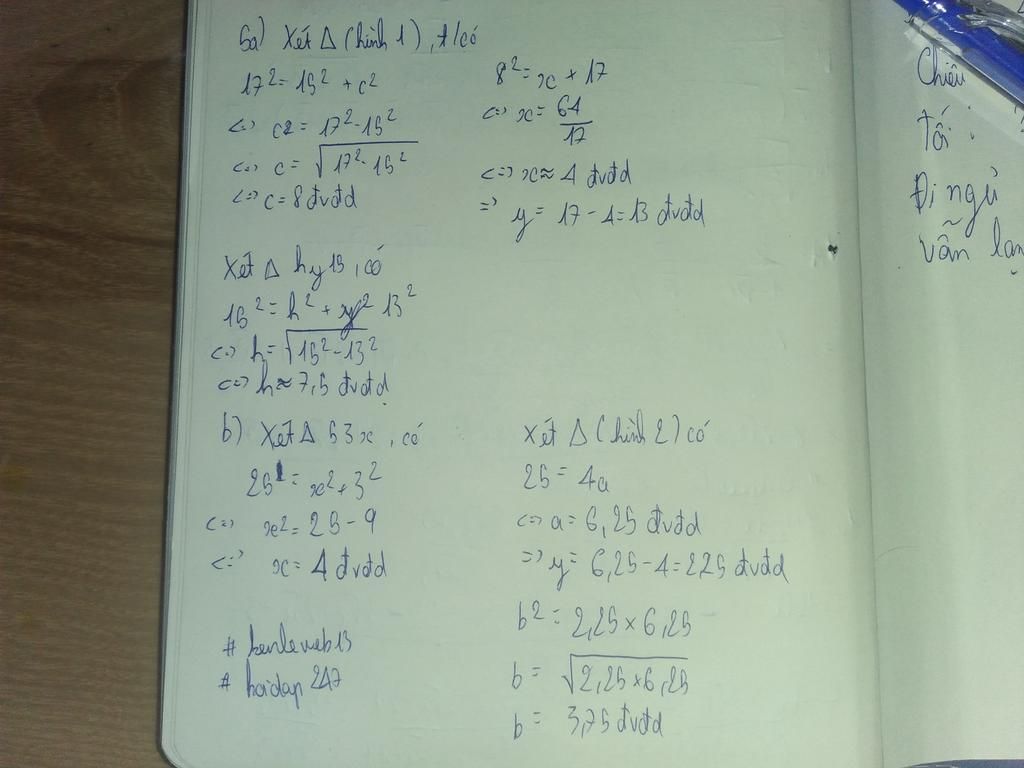 5a) Xét Δ (hình 1), t/có
17² = 15² + c²
<=> c2 = 17² - 15²
<=> c = √17² - 15²
<=> c = 8 đvđd
8² = x × 17
<=> x = 64/17
<=> x ≈ 4 đvđd
=> y = 17 - 4 = 13 đvđd
Xét Δ hy15, có
15² = h² + 13²
<=> h = √15² - 13²
<=> h ≈ 7,5 đvđd
b) Xét Δ 53x, có
25 = x² + 3²
<=> x² = 25 - 9
<=> x = 4 đvđd
# kenleweb13
# hoidap247
Xét Δ (hình 2) có
25 = 4a
<=> a = 6,25 đvđd
=> y = 6,25 - 4 = 2,25 đvđd
b² = 2,25 × 6,25
b = √2,25 × 6,25
b = 3,75 đvđd
Chiều
Tối :
Đi ngủ
vẫn lạn